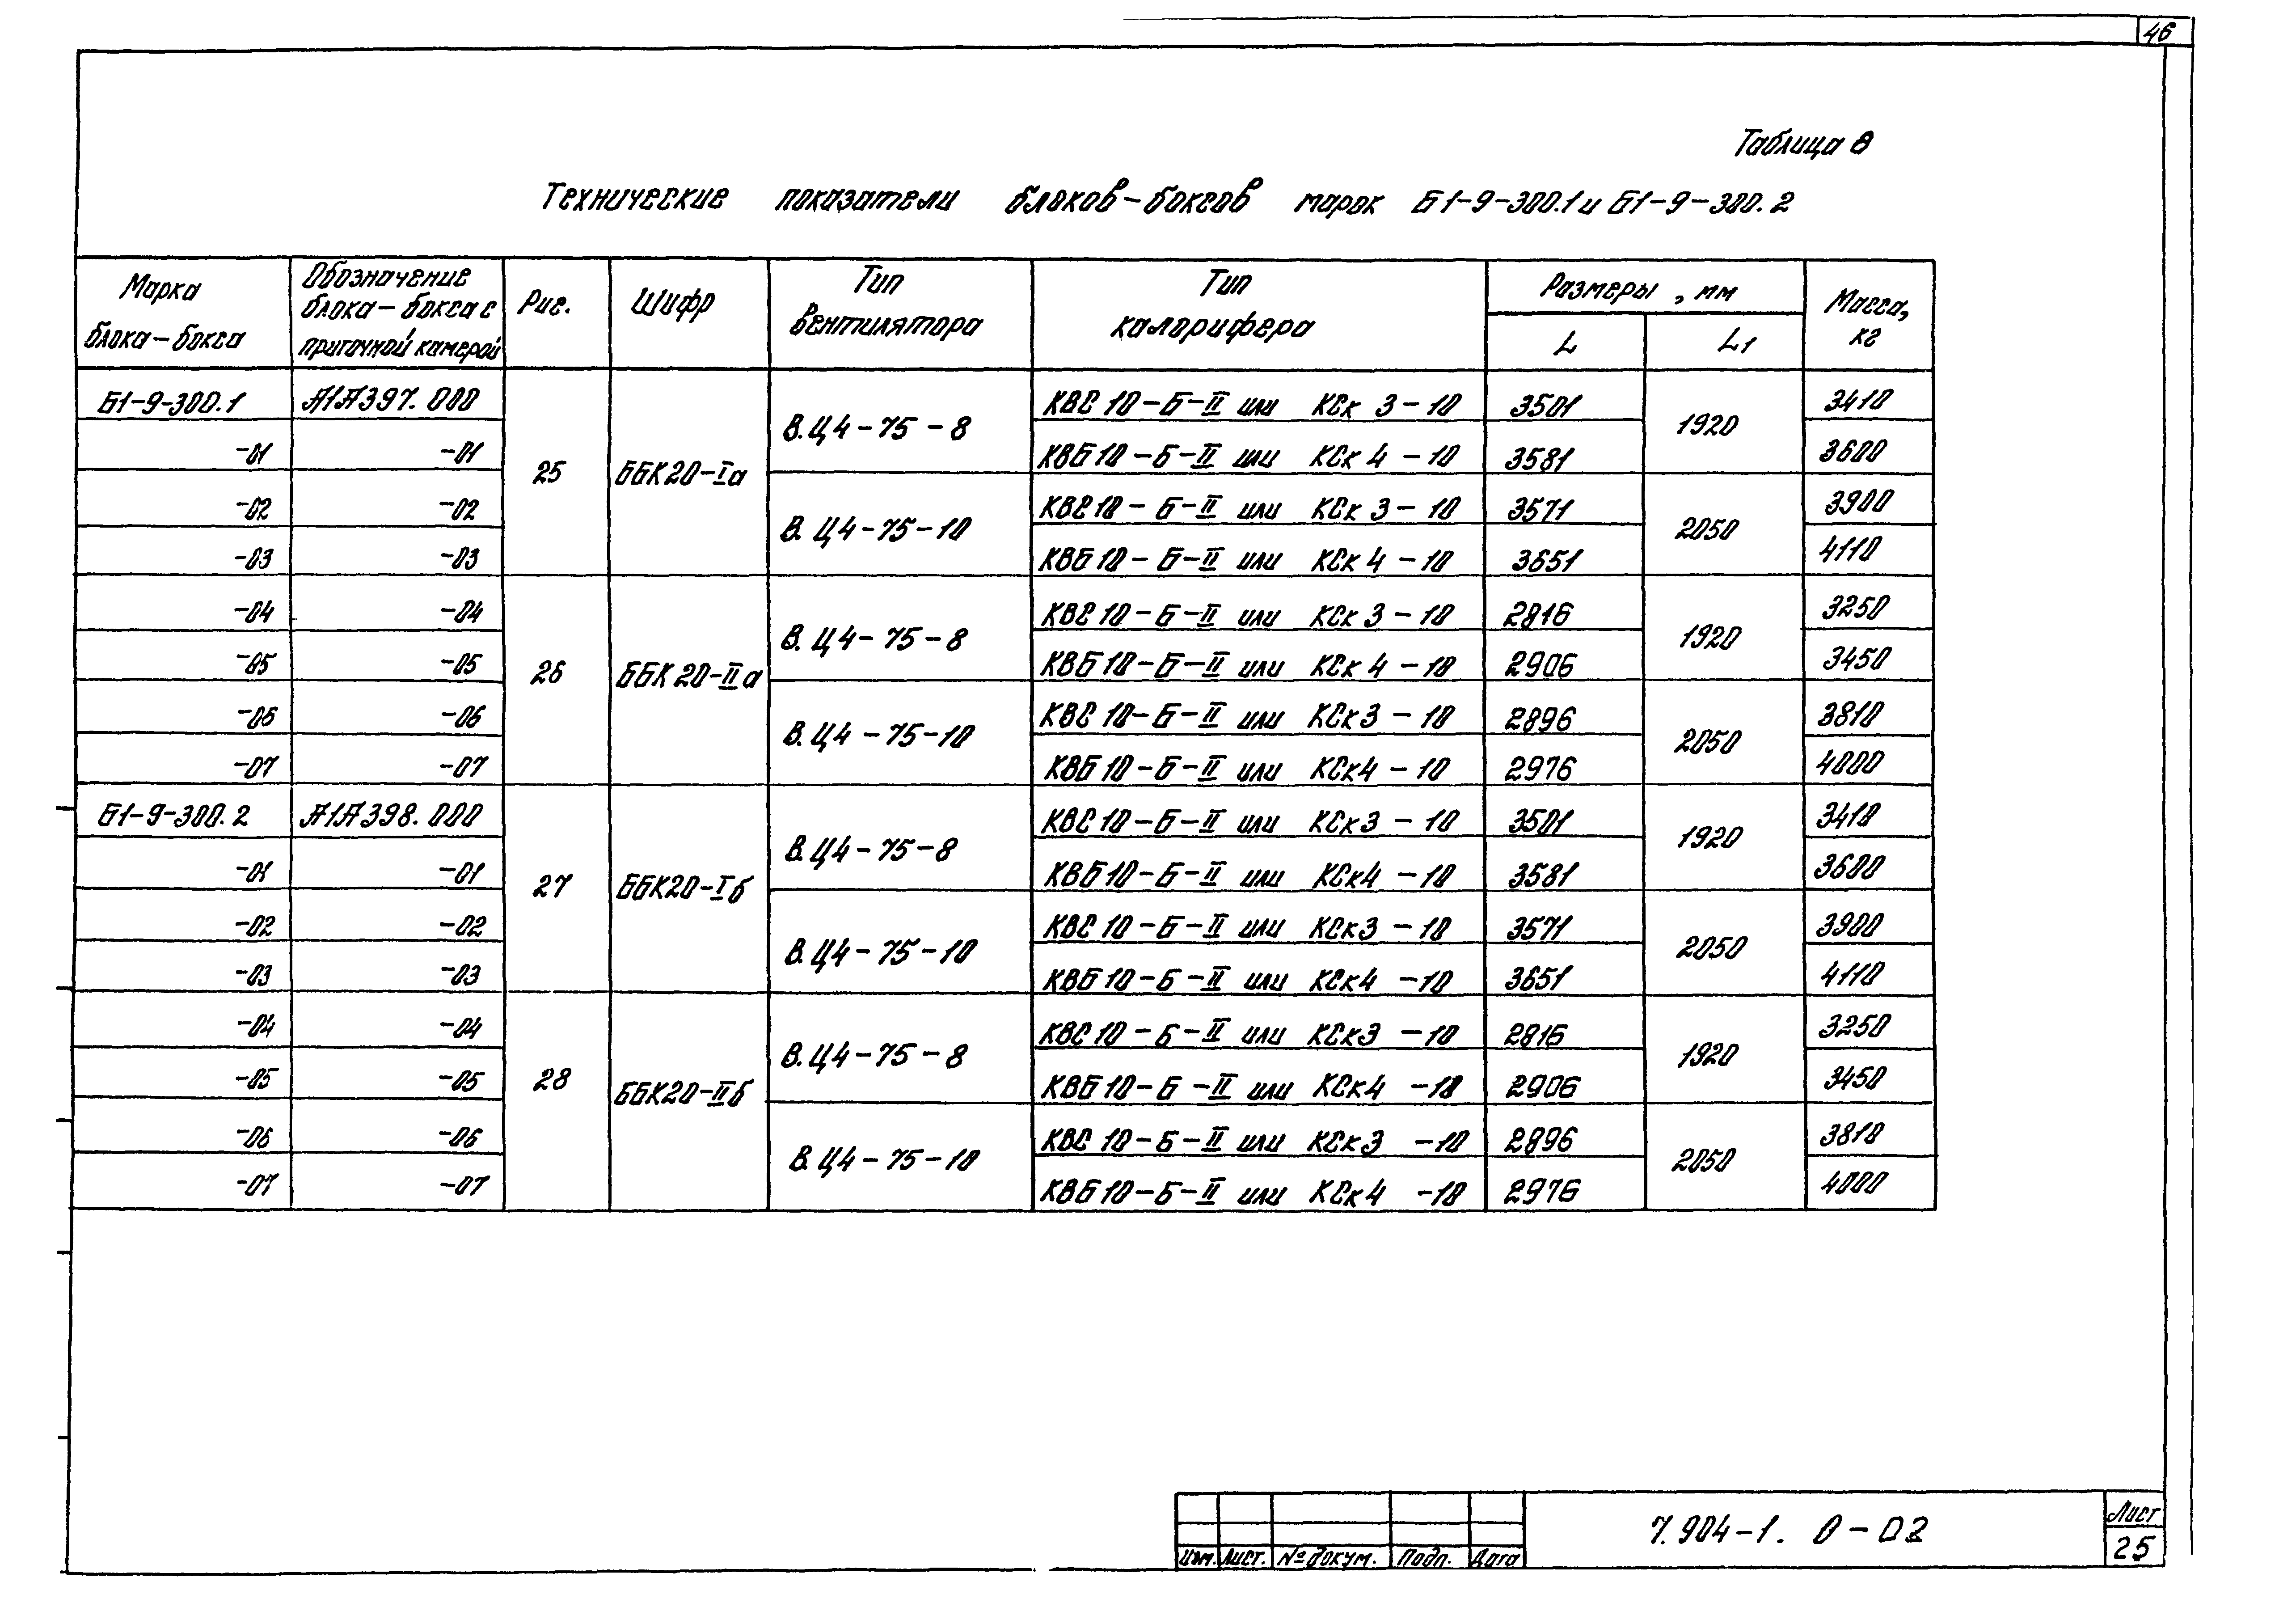 46
Таблица 8
Технические показатели блоков-боксов марок Б1-9-300.1 и Б1-9-300.2
Марка блока-бокса | Обозначение блока-бокса с приточной камерой | Рис. | Шифр | Тип вентилятора | Тип калорифера | Размеры, мм | Масса, кг
L | L1
Б1-9-300.1 | А1А397.000 | 25 | ББК20-Iа | В.Ц4-75-8 | КВС10-Б-II или КСк 3-10 | 3501 | 1920 | 3410
-01 | -01 | КВБ10-Б-II или КСк 4-10 | 3581 | 3600
-02 | -02 | В.Ц4-75-10 | КВС10-Б-II или КСк 3-10 | 3571 | 2050 | 3900
-03 | -03 | КВБ10-Б-II или КСк 4-10 | 3651 | 4110
-04 | -04 | 26 | ББК20-IIа | В.Ц4-75-8 | КВС10-Б-II или КСк 3-10 | 2816 | 1920 | 3250
-05 | -05 | КВБ10-Б-II или КСк 4-10 | 2906 | 3450
-06 | -06 | В.Ц4-75-10 | КВС10-Б-II или КСк3-10 | 2896 | 2050 | 3810
-07 | -07 | КВБ10-Б-II или КСк4-10 | 2976 | 4000
Б1-9-300.2 | А1А398.000 | 27 | ББК20-Iб | В.Ц4-75-8 | КВС10-Б-II или КСк3-10 | 3501 | 1920 | 3410
-01 | -01 | КВБ10-Б-II или КСк4-10 | 3581 | 3600
-02 | -02 | В.Ц4-75-10 | КВС10-Б-II или КСк3-10 | 3571 | 2050 | 3900
-03 | -03 | КВБ10-Б-II или КСк4-10 | 3651 | 4110
-04 | -04 | 28 | ББК20-IIб | В.Ц4-75-8 | КВС10-Б-II или КСк3-10 | 2816 | 1920 | 3250
-05 | -05 | КВБ10-Б-II или КСк4-10 | 2906 | 3450
-06 | -06 | В.Ц4-75-10 | КВС10-Б-II или КСк3-10 | 2896 | 2050 | 3810
-07 | -07 | КВБ10-Б-II или КСк4-10 | 2976 | 4000
Изм. Лист. № докум. Подп. Дата
7.904-1. 0-02
Лист
25